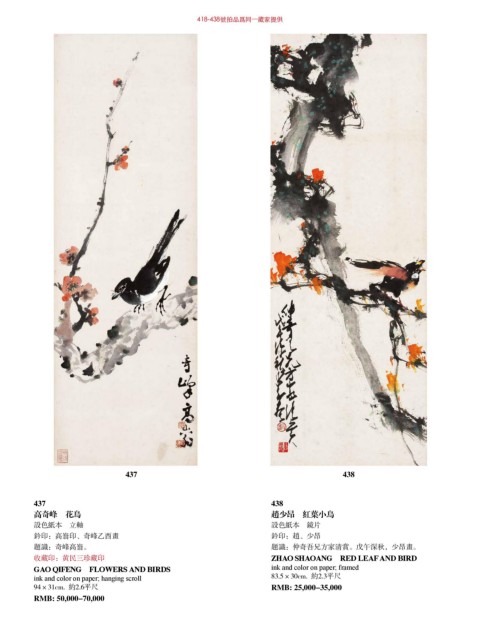 418-438號拍品爲同一藏家提供
奇峰高嵡
437
438
437
高奇峰　花鳥
設色紙本　立軸
鈐印：高嵡印、奇峰乙酉畫
題識：奇峰高嵡。
收藏印：黃民三珍藏印
GAO QIFENG　FLOWERS AND BIRDS
ink and color on paper; hanging scroll
94 × 31cm.  約2.6平尺
RMB: 50,000–70,000
438
趙少昂　紅葉小鳥
設色紙本　鏡片
鈐印：趙、少昂
題識：仲奇吾兄方家清賞。戊午深秋，少昂畫。
ZHAO SHAOANG　RED LEAF AND BIRD
ink and color on paper; framed
83.5 × 30cm.  約2.3平尺
RMB: 25,000–35,000